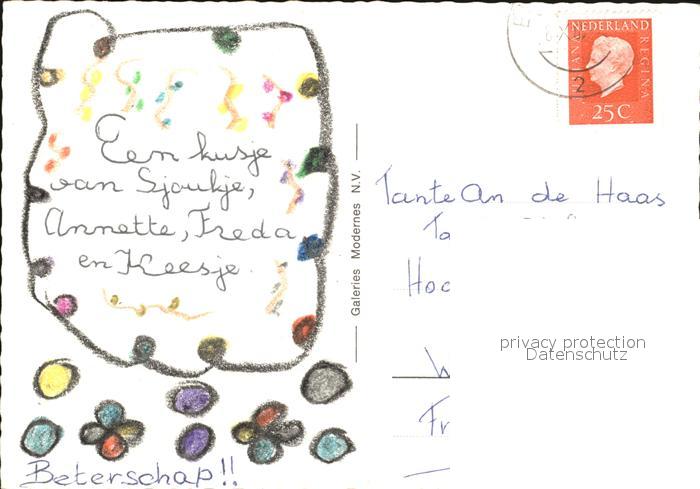 Een kusje
van Sjoukje,
Annette, Freda
en Keesje.
Beterschap!!
Galeries Modernes N.V.
NEDERLAND
REGINA
25 C
2
Tante An de Haas
privacy protection
Datenschutz